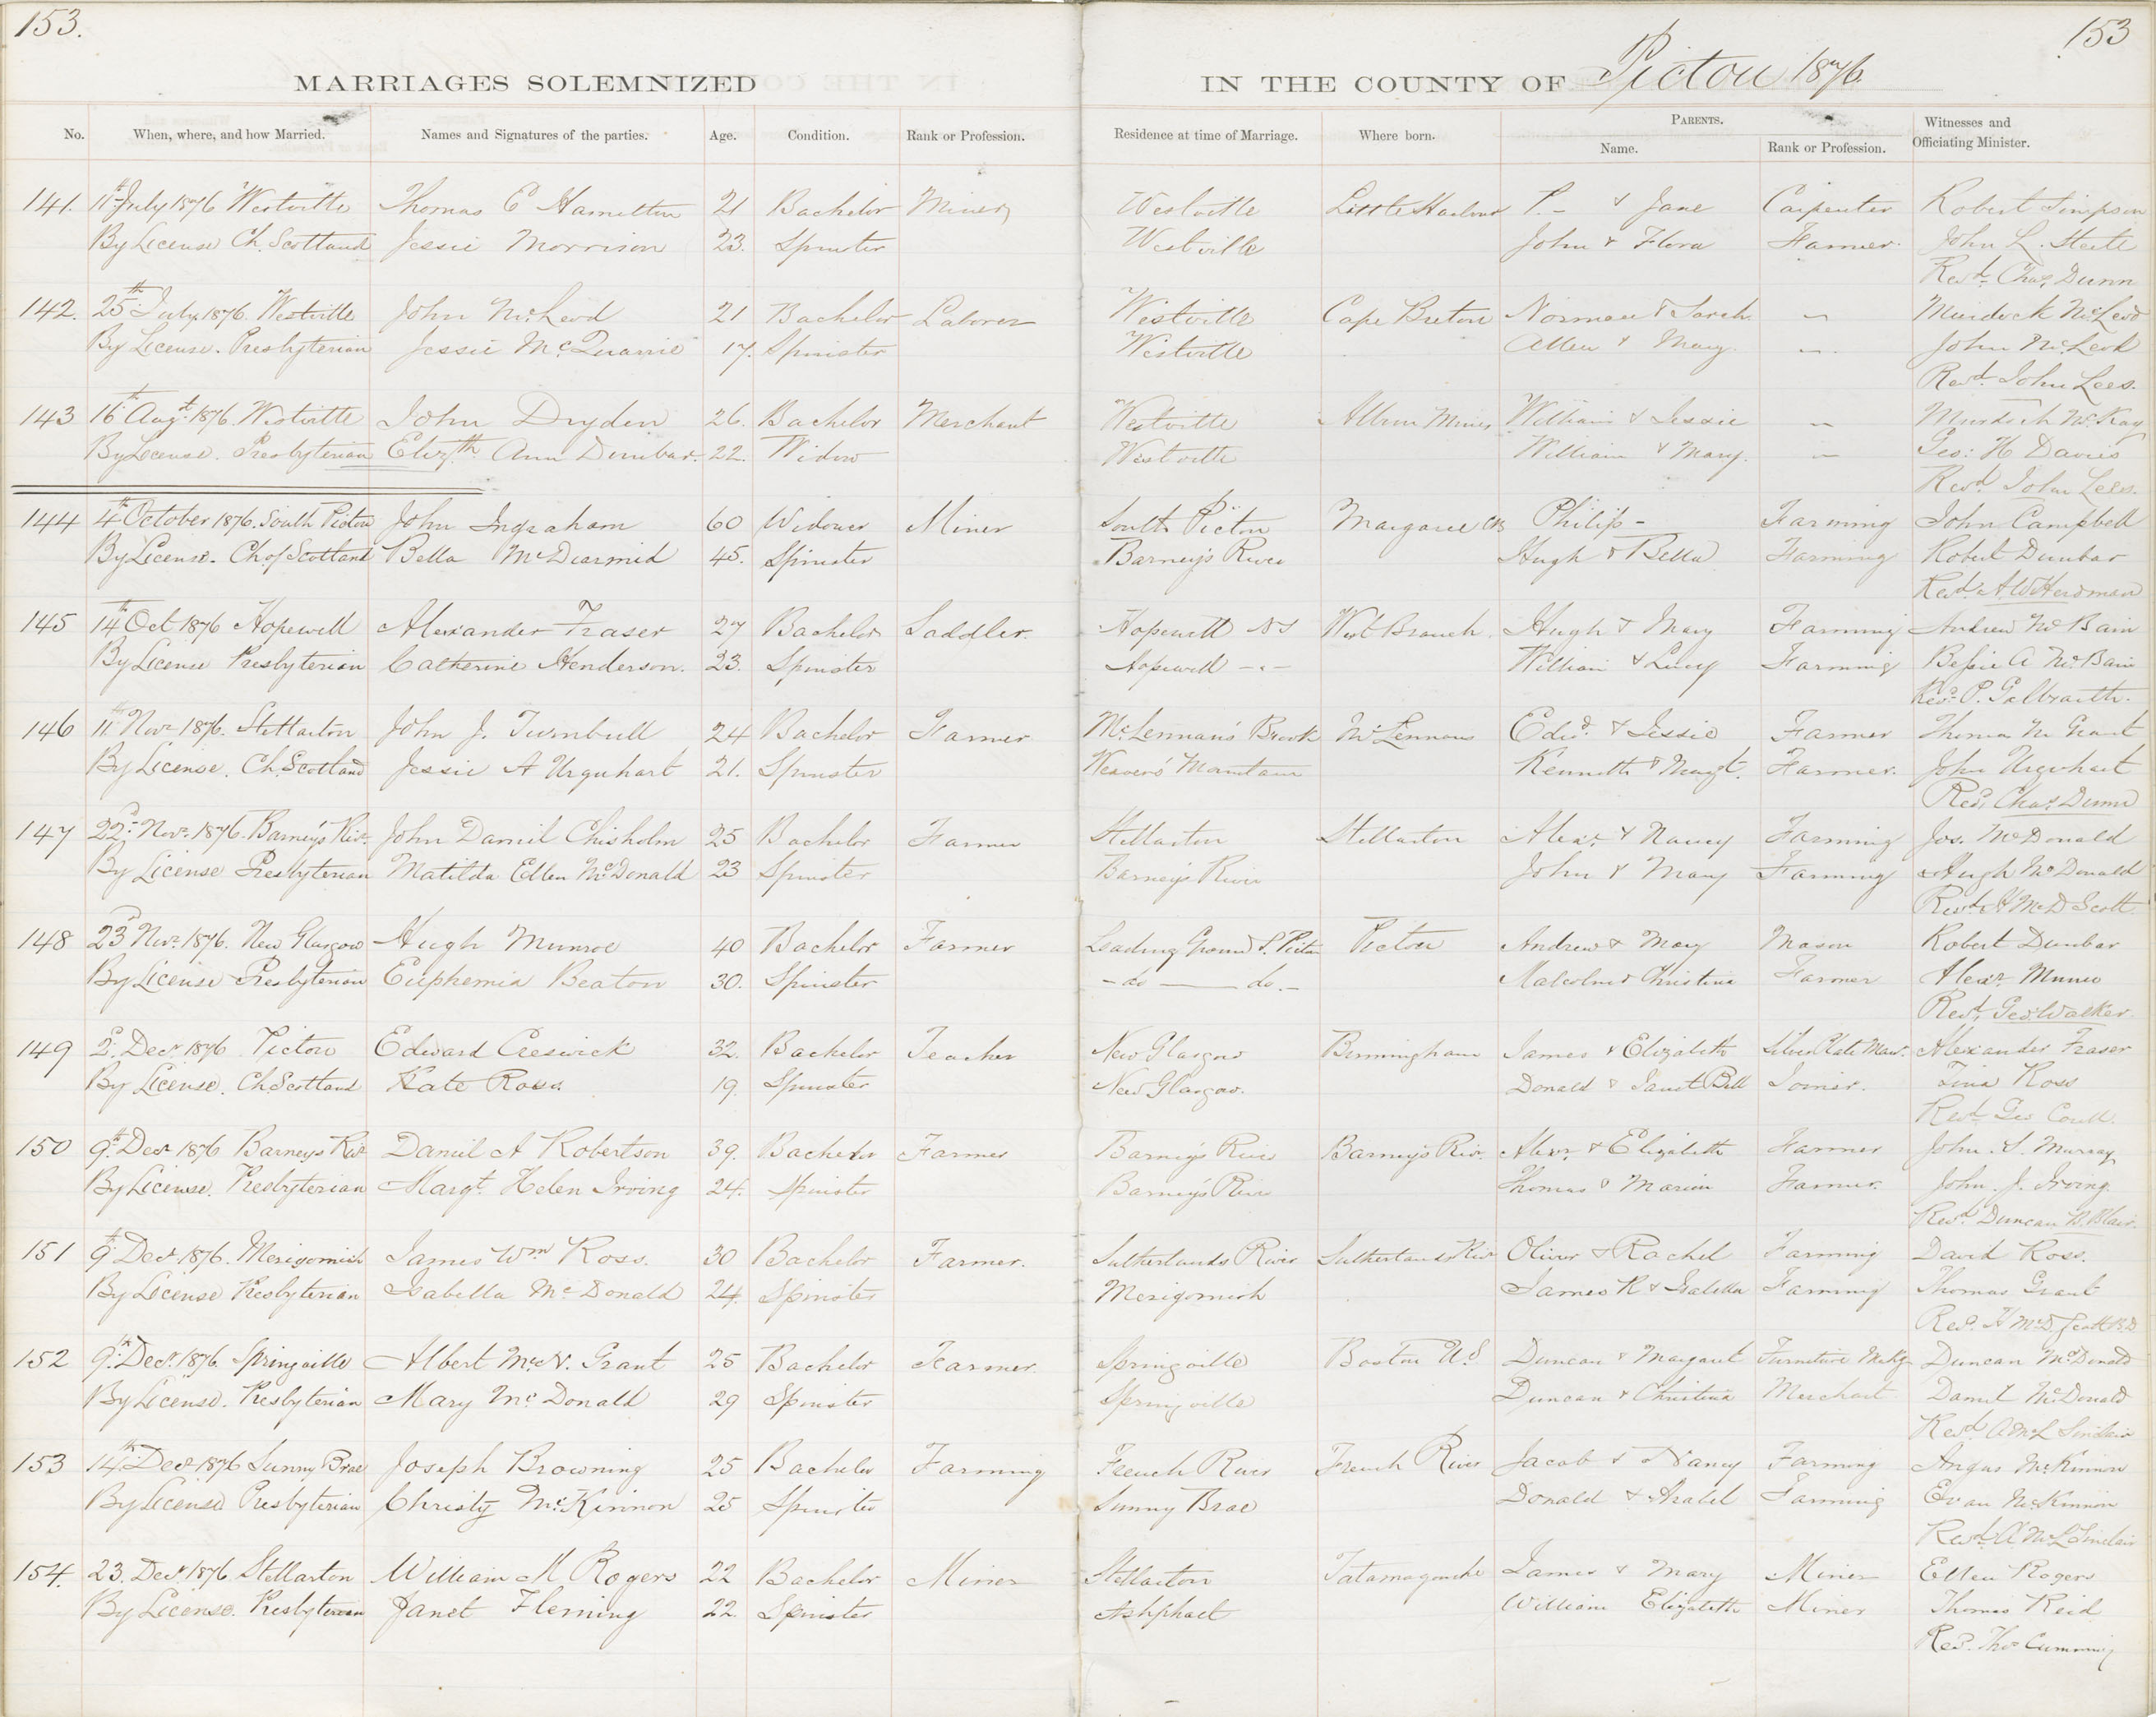 153.
153
MARRIAGES SOLEMNIZED IN THE COUNTY OF Pictou 1876
No. When, where, and how Married. Names and Signatures of the parties. Age. Condition. Rank or Profession. Residence at time of Marriage. Where born. PARENTS. Name. Rank or Profession. Witnesses and Officiating Minister.
141. 11th July 1876 Westville Thomas E Hamilton 21 Bachelor Miner Westville Little Harbour P. - & Jane Carpenter Robert Simpson
By License Ch. Scotland Jessie Morrison 23. Spinster Westville John & Flora Farmer. John L. Steele
Revd. Chas. Dunn
142. 25th July 1876. Westville John McLeod 21 Bachelor Laborer Westville Cape Breton Norman & Sarah — Murdock McLeod
By License. Presbyterian Jessie McQuarrie 17. Spinster Westville Allen & Mary. — John McLeod
Revd. John Lees.
143 16th Augt. 1876. Westville John Dryden 26. Bachelor Merchant Westville Albion Mines William & Jessie — Murdoch McKay
By License. Presbyterian Elizth. Ann Dunbar. 22. Widow Westville William & Mary. — Geo: H Davies
Revd. John Lees.
144 4th October 1876. South Pictou John Ingraham 60 Widower Miner South Pictou Margaree CB Philip - Farming John Campbell
By License. Ch of Scotland Bella McDearmid 45. Spinster Barney's River Hugh & Bella Farming Robert Dunbar
Revd. A W Herdman
145 14th Oct 1876 Hopewell Alexander Fraser 27 Bachelor Saddler. Hopewell NS West Branch. Hugh & Mary Farming Andrew McBain
By License Presbyterian Catherine Henderson. 23. Spinster Hopewell - " - William & Lucy Farming Bessie A McBain
Revd. P. Galbraith.
146 11th Novr 1876. Stellarton John J. Turnbull 24 Bachelor Farmer McLennan's Brook McLennans Edwd. & Jessie Farmer Thomas M Grant
By License. Ch. Scotland Jessie A Urquhart 21. Spinster Weaver's Mountain Kenneth & Margt. Farmer. John Urquhart
Revd. Chas. Dunn
147 22d Novr. 1876. Barney's Rivr. John Daniel Chisholm 25 Bachelor Farmer Stellarton Stellarton Alexr. & Nancy Farming Jos. McDonald
By License Presbyterian Matilda Ellen McDonald 23 Spinster Barney's River John & Mary Farming Hugh McDonald
Revd. A McD Scott
148 23d Novr. 1876. New Glasgow Hugh Munroe 40 Bachelor Farmer Loading Ground S. Pictou Pictou Andrew & Mary Mason Robert Dunbar
By License Presbyterian Euphemia Beaton 30. Spinster - do — do. - Malcolm & Christina Farmer Alexr. Munro
Revd. Geo. Walker
149 2d Decr 1876 Pictou Edward Creswick 32. Bachelor Teacher New Glasgow Birmingham James & Elizabeth Silver Plate Man. Alexander Fraser
By License. Ch. Scotland Kate Ross. 19. Spinster New Glasgow. Donald & Janet Bell Joiner. Tina Ross
Revd. Geo Coull
150 9th Decr 1876 Barneys Rivr Daniel A Robertson 39. Bachelor Farmer Barney's River Barney's Rivr. Alexr. & Elizabeth Farmer John. S. Murray
By License. Presbyterian Margt. Helen Irving 24. Spinster Barney's River Thomas & Marion Farmer. John. J. Irving.
Revd. Duncan B. Blair.
151 9th Decr. 1876. Merigomish James Wm Ross. 30 Bachelor Farmer. Sutherlands River Sutherlands Rivr Oliver & Rachel Farming David Ross.
By License Presbyterian Isabella McDonald 24. Spinster Merigomish James R & Isabella Farming Thomas Grant
Revd. A McD. Scott B.D
152 9th Decr. 1876. Springville Albert McN. Grant 25 Bachelor Farmer. Springville Boston US Duncan & Margaret Furniture Makg Duncan McDonald
By License. Presbyterian Mary McDonald 29 Spinster Springville Duncan & Christina Merchant Daniel McDonald
Revd A McL Sinclair
153 14th Decr 1876 Sunny Brae Joseph Browning 25 Bachelor Farming French River French River Jacob & Nancy Farming Angus McKinnon
By License Presbyterian Christy McKinnon 25 Spinster Sunny Brae Donald & Isabel Farming Evan McKinnon
Revd. A McL Sinclair
154. 23. Decr 1876 Stellarton William M Rogers 22 Bachelor Miner Stellarton Tatamagouche James & Mary Miner Ellen Rogers
By License. Presbyterian Janet Fleming 22. Spinster Ashphalt William Elizabeth Miner Thomas Reid
Revd. Thos Cumming